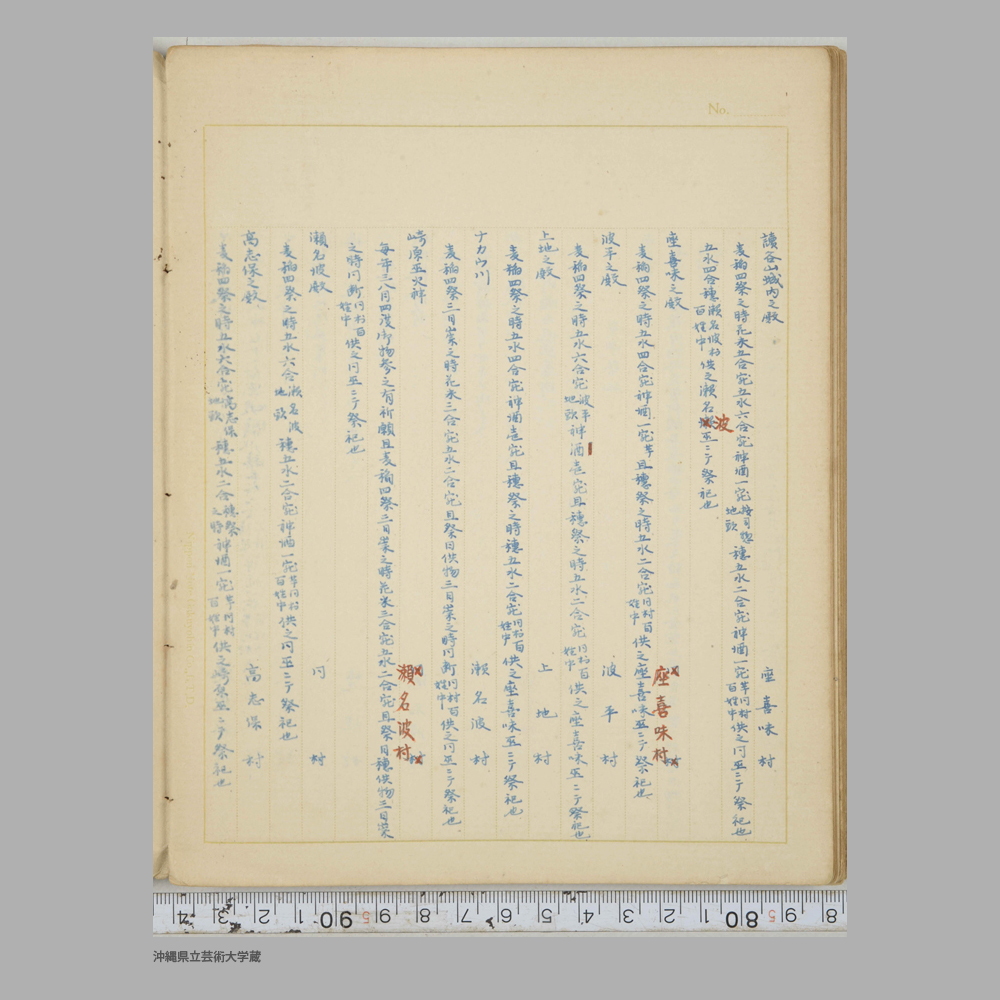 No.
讀谷山城内之殿 座喜味村
麦稲四祭之時花米五合宛五水六合宛神酒一宛按司惣地頭穂五水二合宛神酒一宛芋同村百姓中供之同巫ニテ祭祀也
五水四合穂瀬名波村百姓中供之瀬名波巫ニテ祭祀也
座喜味之殿 座喜味村
麦稲四祭之時五水四合宛神酒一宛芋且穂祭之時五水二合宛同村百姓中供之座喜味巫ニテ祭祀也
波平之殿 波平村
麦稲四祭之時五水六合宛波平地頭神酒壱宛且穂祭之時五水二合宛同村百姓中供之座喜味巫ニテ祭祀也
上地之殿 上地村
麦稲四祭之時五水四合宛神酒壱宛且穂祭之時穂五水二合宛同村百姓中供之座喜味巫ニテ祭祀也
ナカウ川 瀬名波村
麦稲四祭三日崇之時花米三合宛五水二合宛且祭日供物三日崇之時同断同村百姓中供之同巫ニテ祭祀也
崎原巫火神 瀬名波村
毎年三八月四度御物参之有祈願且麦稲四祭三日崇之時花米三合宛五水二合宛且祭日穂供物三日崇
之時同断同村百姓中供之同巫ニテ祭祀也
瀬名波殿 同村
麦稲四祭之時五水六合瀬名波地頭穂五水二合宛神酒一宛芋同村百姓中供之同巫ニテ祭祀也
高志保之殿 高志保村
麦稲四祭之時五水六合宛高志保地頭穂五水二合穂祭之時神酒一宛芋同村百姓中供之崎原巫ニテ祭祀也
沖縄県立芸術大学蔵